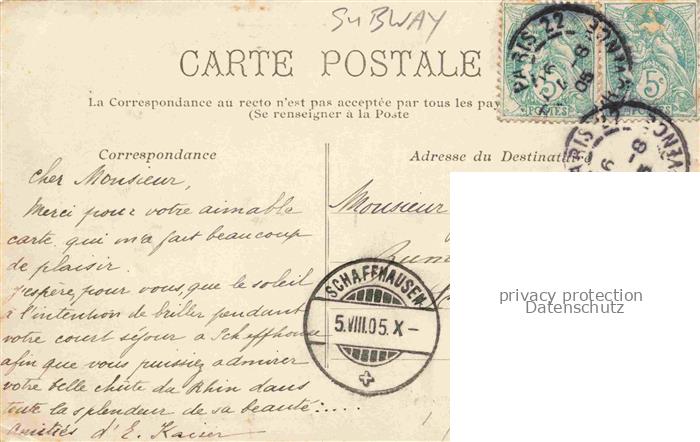 SUBWAY
CARTE POSTALE
La Correspondance au recto n'est pas acceptée par tous les pay
(Se renseigner à la Poste
Correspondance
Adresse du Destinataire
Cher Monsieur,
Merci pour votre aimable
carte, qui m'a fait beaucoup
de plaisir.
J'espère, pour vous, que le soleil
à l'intention de briller pendant
votre court séjour à Scheffhouse
afin que vous puissiez admirer
votre belle chûte du Rhin dans
toute la splendeur de sa beauté.....
Amitiés d'E. Kaiser
Monsieur
PARIS 22
5c
POSTES
5c
POSTES
PARIS 22
SCHAFFHAUSEN
5.VIII.05.X-
privacy protection
Datenschutz